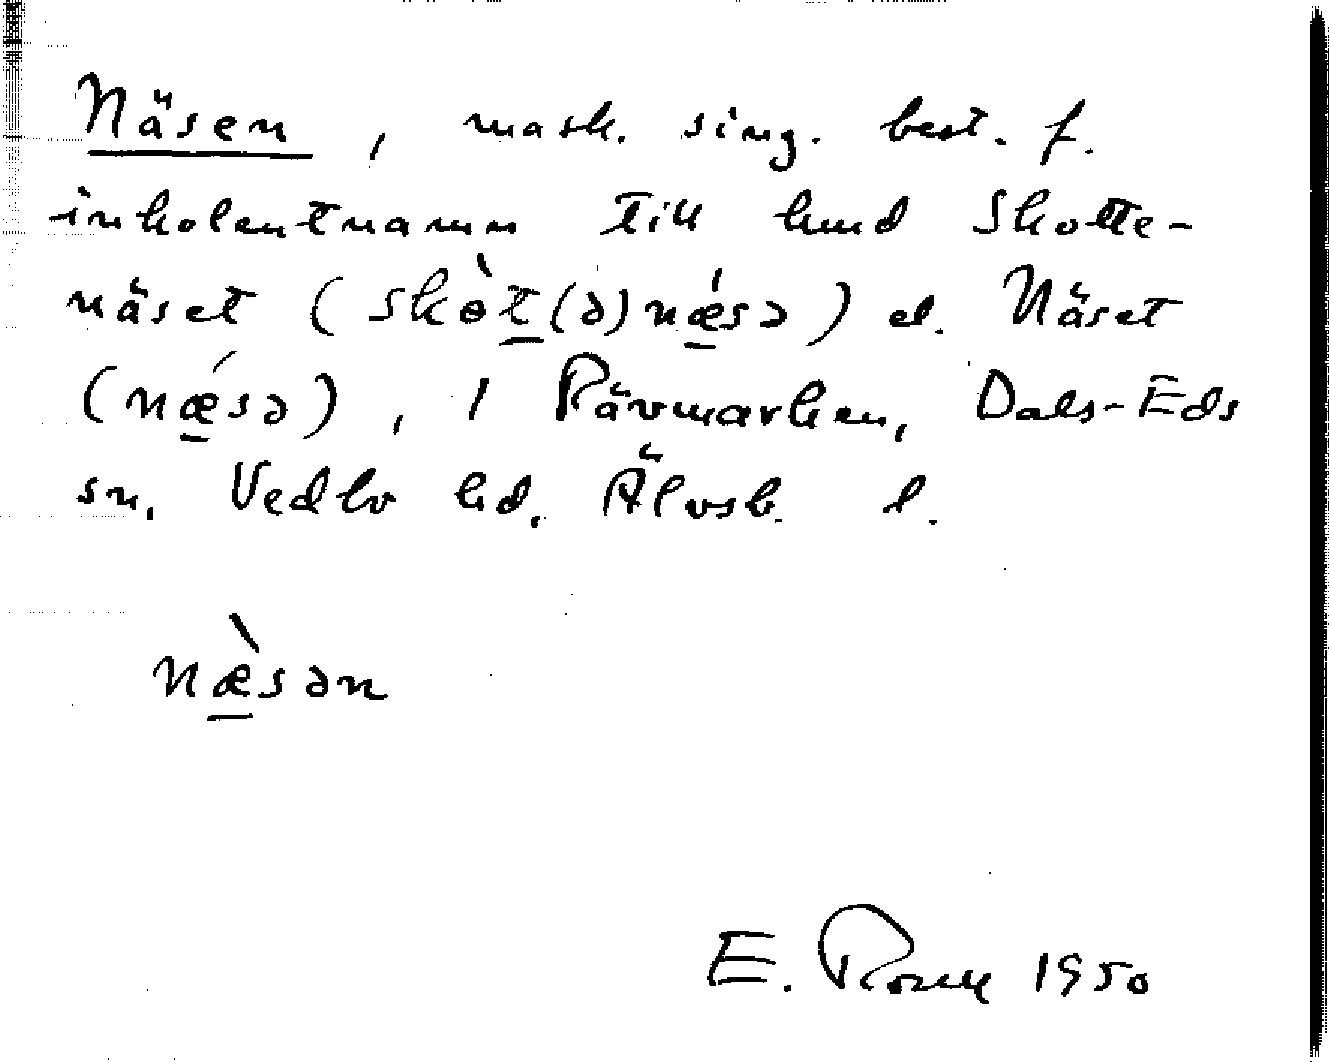 Näsen, mask. sing. best. f.
inkolentnamn till hmd Skotte-
näset (skò̠t(ə)nǽ̠sə) el. Näset
(nǽ̠sə), 1 Rävmarken, Dals-Eds
sn, Vedbo hd, Älvsb. l.
næ̠̀sən
E. 1950